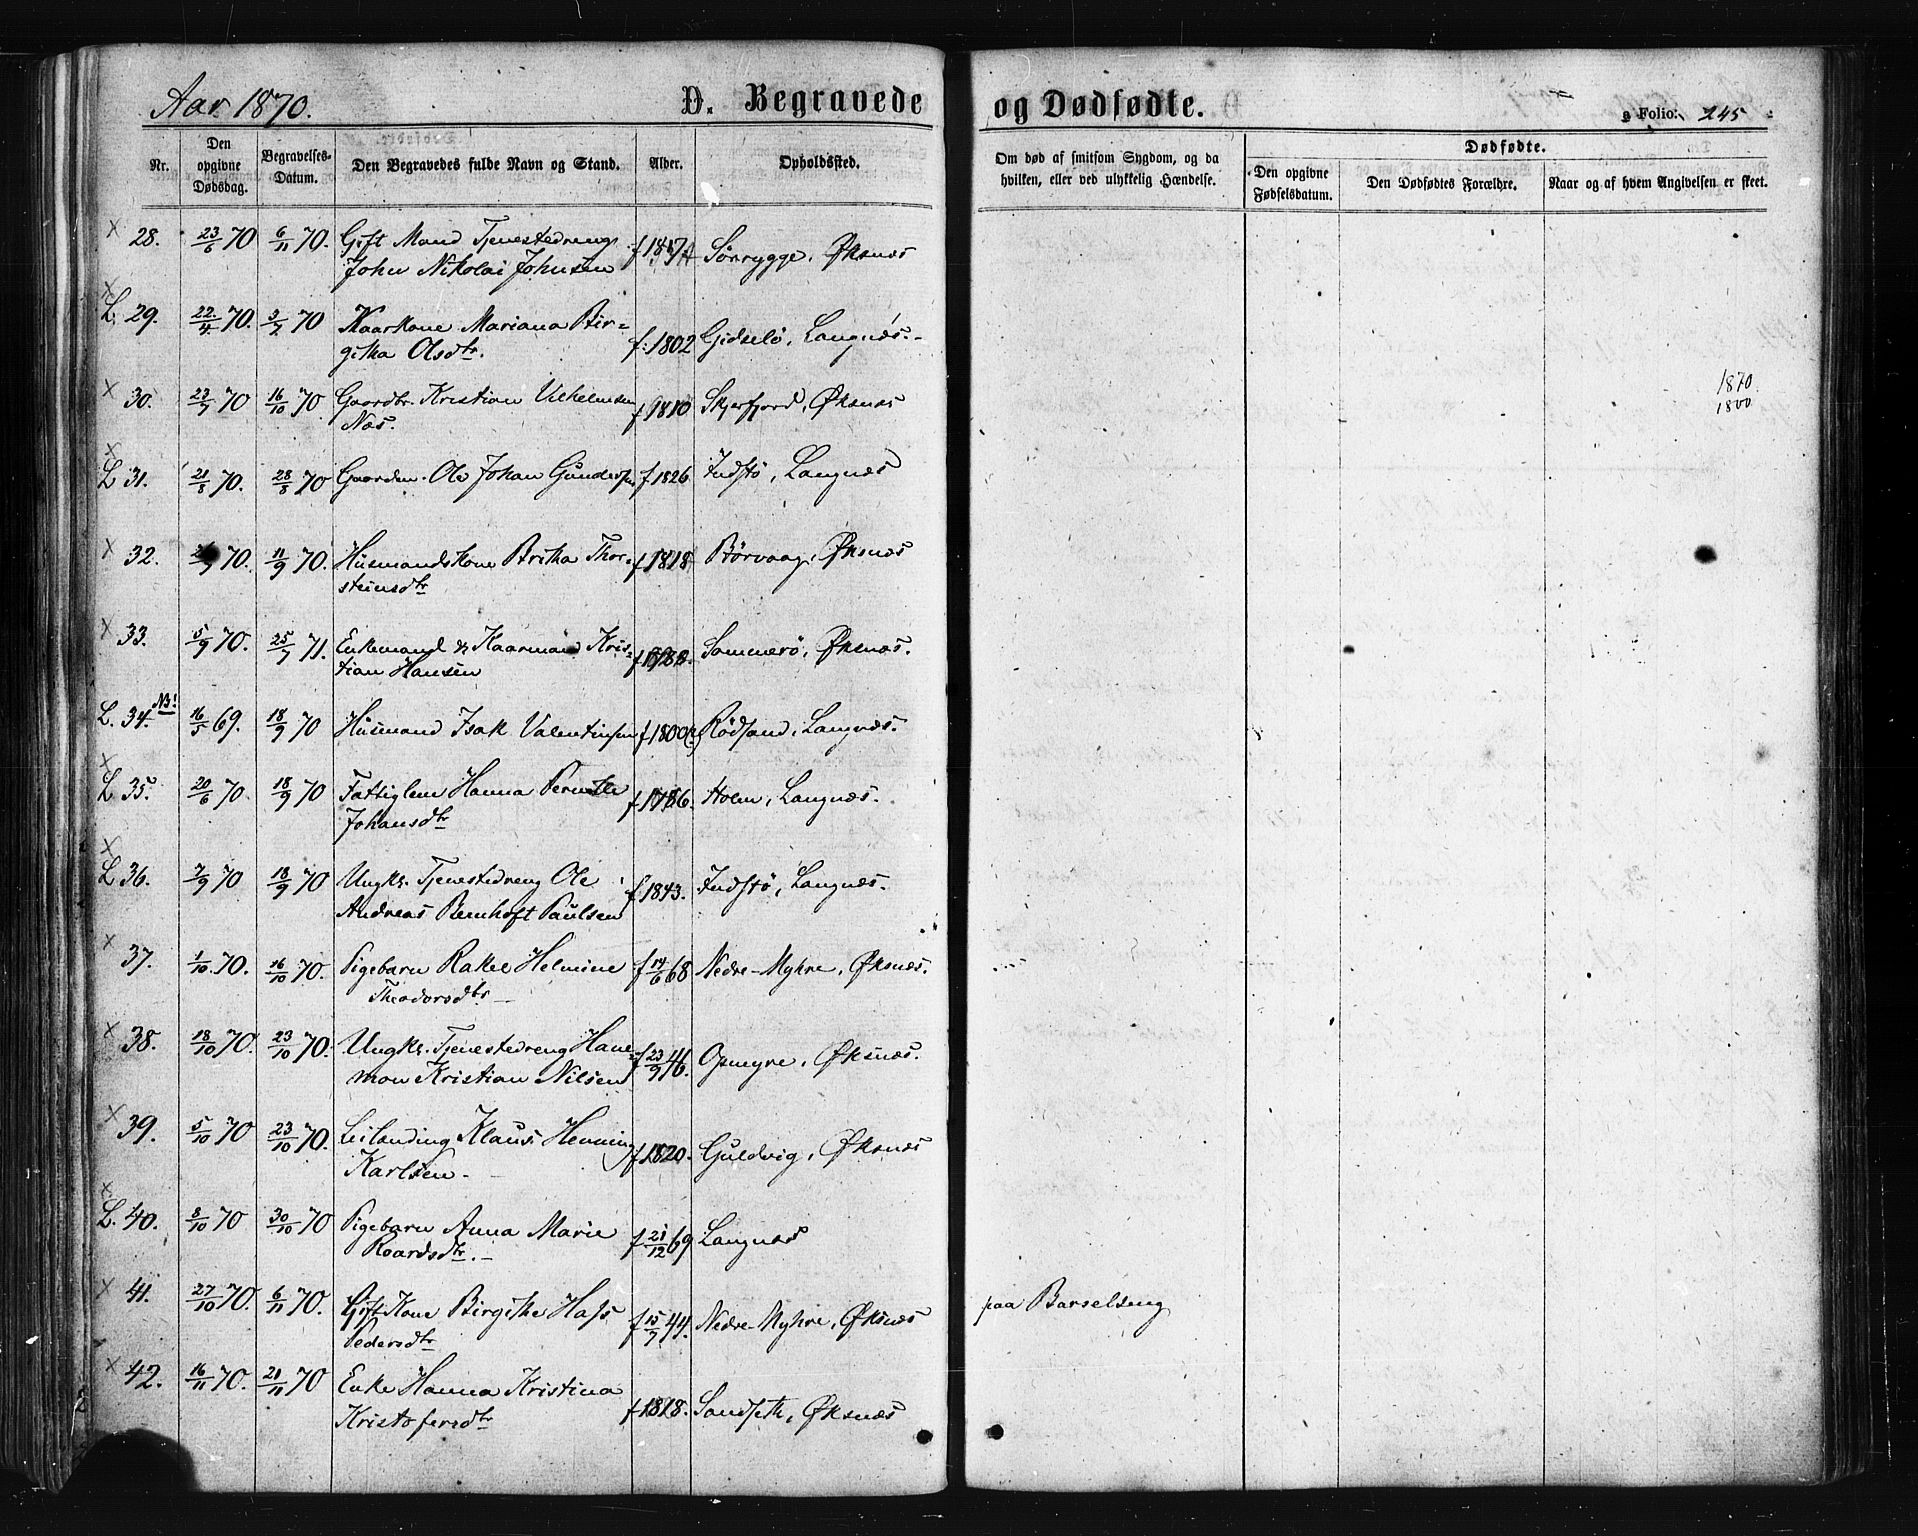 Aar 1870.
D. Begravede og Dødfødte.
Folio: 245
Nr.
Den opgivne Dødsdag.
Begravelses-Datum.
Den Begravedes fulde Navn og Stand.
Alder.
Opholdssted.
Om død af smitsom Sygdom, og da hvilken, eller ved ulykkelig Hændelse.
Dødfødte.
Den opgivne Fødselsdatum.
Den Dødfødtes Forældre.
Naar og af hvem Angivelsen er skeet.
× 28. 23/6 70 6/11 70. Gift Mand Tjenestedreng f 1817 Sørrygge, Øksnæs
John Nikolai Johnsen
× L. 29. 22/4 70. 3/7 70 Kaarkone Mariana Bir= f: 1802 Gidselö, Langnæs.
githa Olsdtr.
× 30. 23/7 70 16/10 70 Gaardbr. Kristian Vilhelmsen f 1810 Skjerfjord, Øksnæs
Næs.
1870
1800
× L 31. 21/8 70. 28/8 70 Gaardm. Ole Johan Gundersen f. 1826 Indstö, Langnæs
× 32. 70. 11/9 70. Husmandskone Britha Thor= f 1818 Børvaag, Øksnæs
steinsdtr
× 33. 5/9 70. 25/7 71. Enkemand & Kaarmand Kris= f 1788. Sommerö, Øksnæs.
tian Hansen
L. 34. NB! 16/5 69. 18/9 70 Husmand Isak Valentinsen f 1800 Rødsand, Langnæs.
× L 35. 20/6 70. 18/9 70 Fattiglem Hanna Pernille f 1786. Holm, Langnæs.
Johansdtr
× L 36. 7/9 70 18/9 70 Ungk. Tjenestedreng Ole f 1843. Indstö, Langnæs.
Andreas Bernhoft Paulsen
× 37. 1/10 70. 16/10 70. Pigebarn Rakel Helmine f 14/6 68 Nedre-Myhre, Øksnæs.
Theodorsdtr
× 38. 18/10 70. 23/10 70. Ungk. Tjenestedreng Hane= f 23/9 46. Opmyre, Øksnæs.
mon Kristian Nilsen
× 39. 5/10 70 23/10 70. Leilænding Klaus Henning f 1820. Guldvig, Øksnæs
Karlsen
× L. 40. 8/10 70 30/10 70 Pigebarn Anna Marie f 21/12 69 Langnæs
Roardsdtr.
× 41. 27/10 70. 6/11 70. Gift Kone Birgithe Hass f 15/7 44. Nedre-Myhre, Øksnæs paa Barselseng
Pedersdtr
× 42. 16/11 70. 21/11 70 Enke Hanna Kristina f 1818. Sandseth, Øksnæs
Kristofersdtr